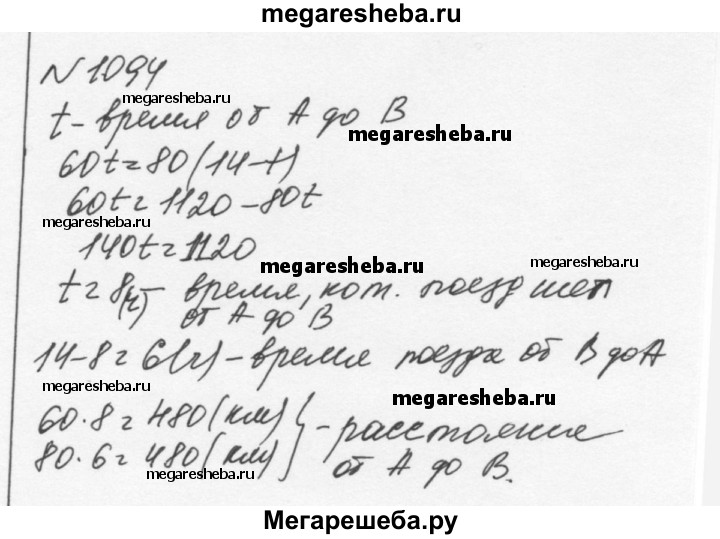 megaresheba.ru
N 1094
megaresheba.ru
t - время от А до В
megaresheba.ru
60t = 80(14-t)
60t = 1120 - 80t
megaresheba.ru
140t = 1120
megaresheba.ru
t = 8(ч) - время, кот. поезд шел
от А до В
14-8 = 6(ч) - время поезда от В до А
megaresheba.ru
megaresheba.ru
60·8 = 480(км) } - расстояние
80·6 = 480(км) } от А до В.
megaresheba.ru
Мегарешеба.ру